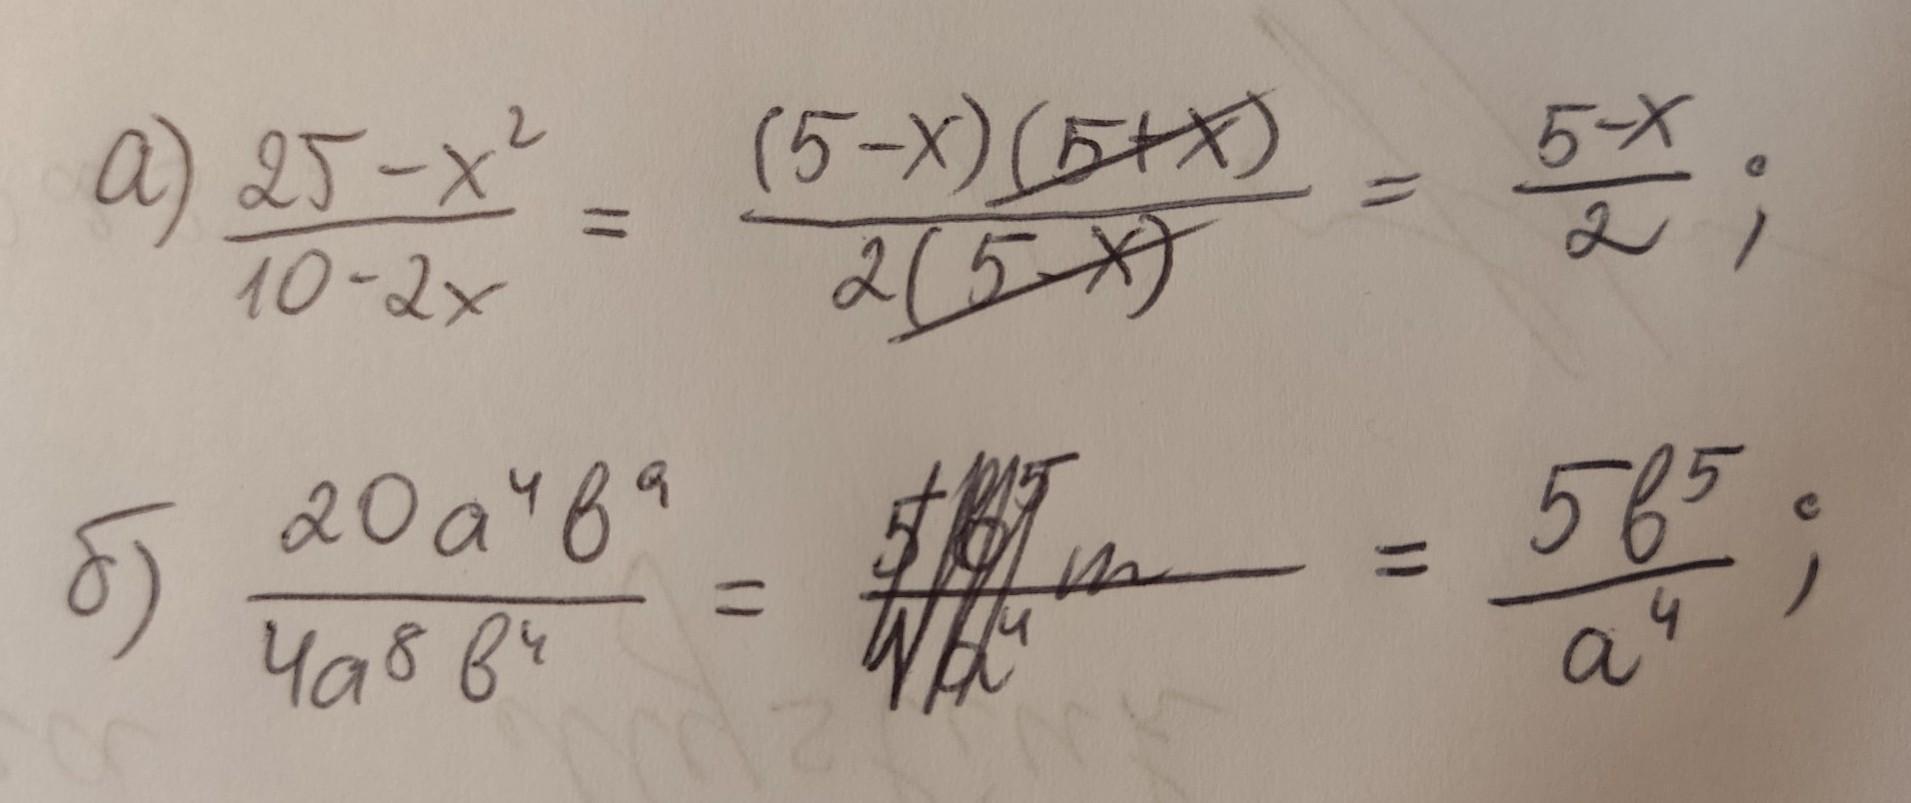 а) (25-x²)/(10-2x) = ((5-x)(5+x))/(2(5-x)) = (5-x)/2 ;
б) (20a⁴b⁹)/(4a⁸b⁴) = = (5b⁵)/(a⁴) ;